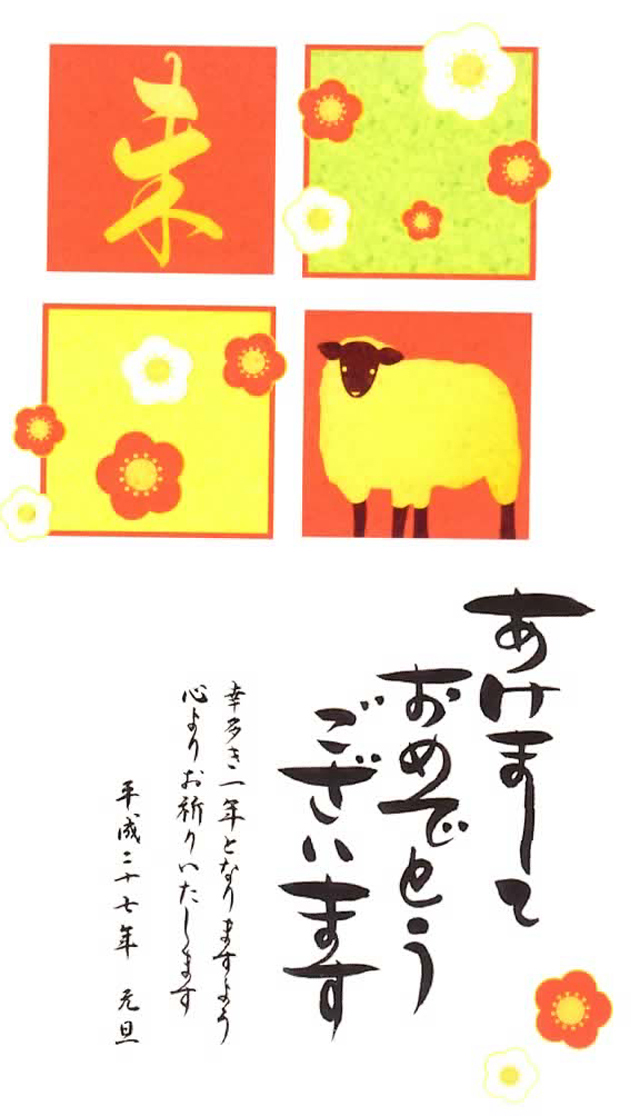 未
あけまして
おめでとう
ございます
幸多き一年となりますよう
心よりお祈りいたします
平成二十七年 元旦